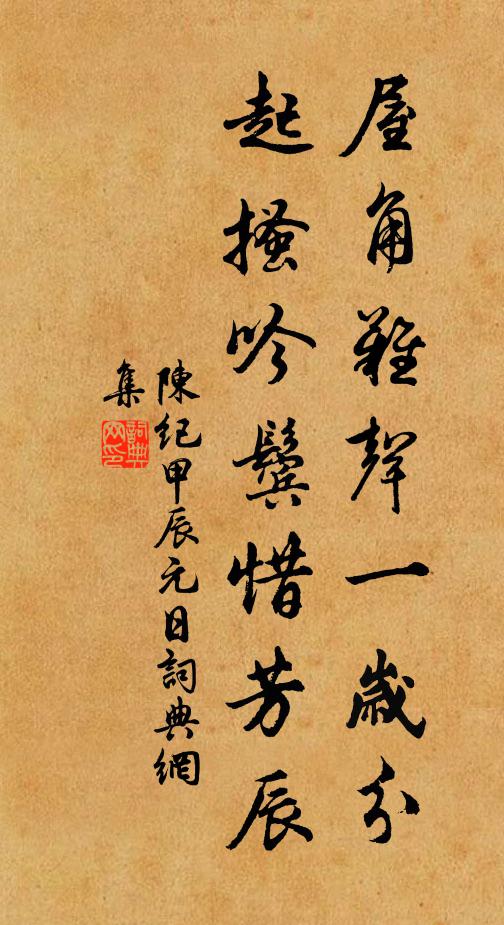 屋角雞聲一歲分
起搔吟鬢惜芳辰
陳紀甲辰元日詞典網
集
詞典網印